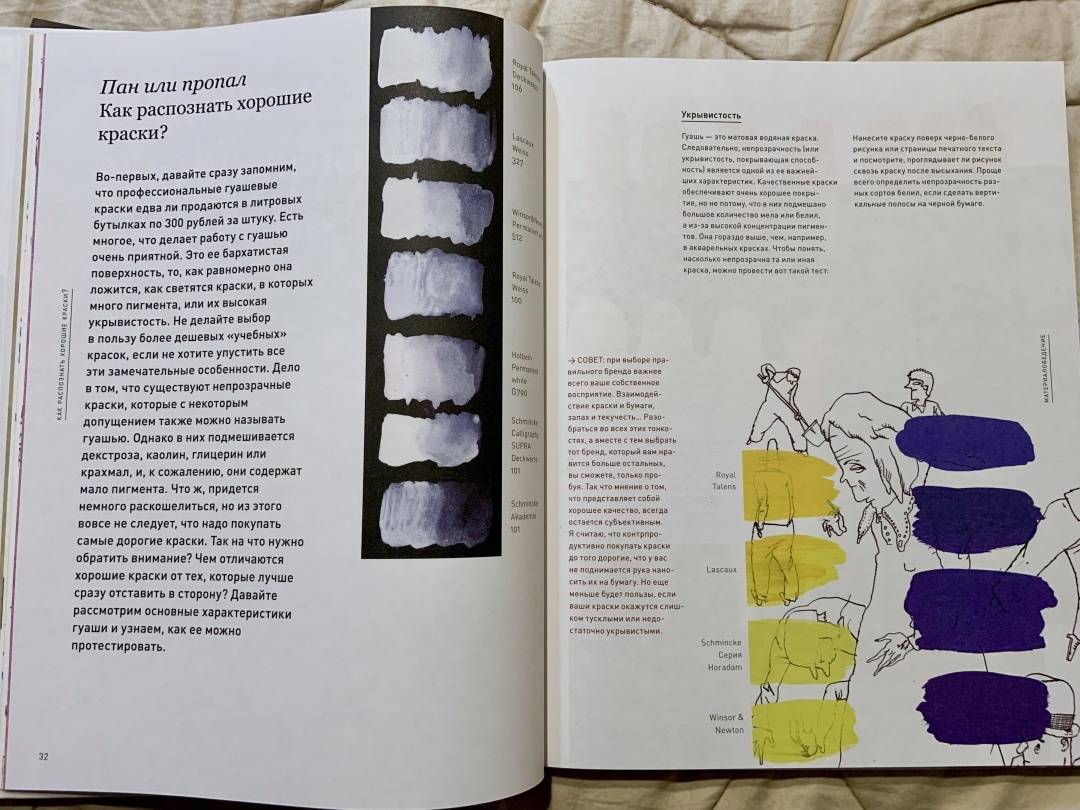 Пан или пропал
Как распознать хорошие
краски?
Во-первых, давайте сразу запомним,
что профессиональные гуашевые
краски едва ли продаются в литровых
бутылках по 300 рублей за штуку. Есть
многое, что делает работу с гуашью
очень приятной. Это ее бархатистая
поверхность, то, как равномерно она
ложится, как светятся краски, в которых
много пигмента, или их высокая
укрывистость. Не делайте выбор
в пользу более дешевых «учебных»
красок, если не хотите упустить все
эти замечательные особенности. Дело
в том, что существуют непрозрачные
краски, которые с некоторым
допущением также можно называть
гуашью. Однако в них подмешивается
декстроза, каолин, глицерин или
крахмал, и, к сожалению, они содержат
мало пигмента. Что ж, придется
немного раскошелиться, но из этого
вовсе не следует, что надо покупать
самые дорогие краски. Так на что нужно
обратить внимание? Чем отличаются
хорошие краски от тех, которые лучше
сразу отставить в сторону? Давайте
рассмотрим основные характеристики
гуаши и узнаем, как ее можно
протестировать.
КАК РАСПОЗНАТЬ ХОРОШИЕ КРАСКИ?
32
Royal Talens
Deckweiss
106
Lascaux
Weiss
327
Winsor&Newton
Permanent
512
Royal Talens
Weiss
100
Holbein
Permanent
white
G790
Schmincke
Calligraphy
SUPRA
Deckweiss
101
Schmincke
Akademie
101
Укрывистость
Гуашь — это матовая водяная краска.
Следовательно, непрозрачность (или
укрывистость, покрывающая способ-
ность) является одной из ее важней-
ших характеристик. Качественные краски
обеспечивают очень хорошее покры-
тие, но не потому, что в них подмешано
большое количество мела или белил,
а из-за высокой концентрации пигмен-
тов. Она гораздо выше, чем, например,
в акварельных красках. Чтобы понять,
насколько непрозрачна та или иная
краска, можно провести вот такой тест:
Нанесите краску поверх черно-белого
рисунка или страницы печатного текста
и посмотрите, проглядывает ли рисунок
сквозь краску после высыхания. Проще
всего определить непрозрачность раз-
ных сортов белил, если сделать верти-
кальные полосы на черной бумаге.
→ СОВЕТ: при выборе пра-
вильного бренда важнее
всего ваше собственное
восприятие. Взаимодей-
ствие краски и бумаги,
запах и текучесть... Разо-
браться во всех этих тонко-
стях, а вместе с тем выбрать
тот бренд, который вам нра-
вится больше остальных,
вы сможете, только про-
буя. Так что мнение о том,
что представляет собой
хорошее качество, всегда
остается субъективным.
Я считаю, что контрпро-
дуктивно покупать краски
до того дорогие, что у вас
не поднимается рука нано-
сить их на бумагу. Но еще
меньше будет пользы, если
ваши краски окажутся слиш-
ком тусклыми или недо-
статочно укрывистыми.
Royal
Talens
Lascaux
Schmincke
Серия
Horadam
Winsor &
Newton
МАТЕРИАЛОВЕДЕНИЕ